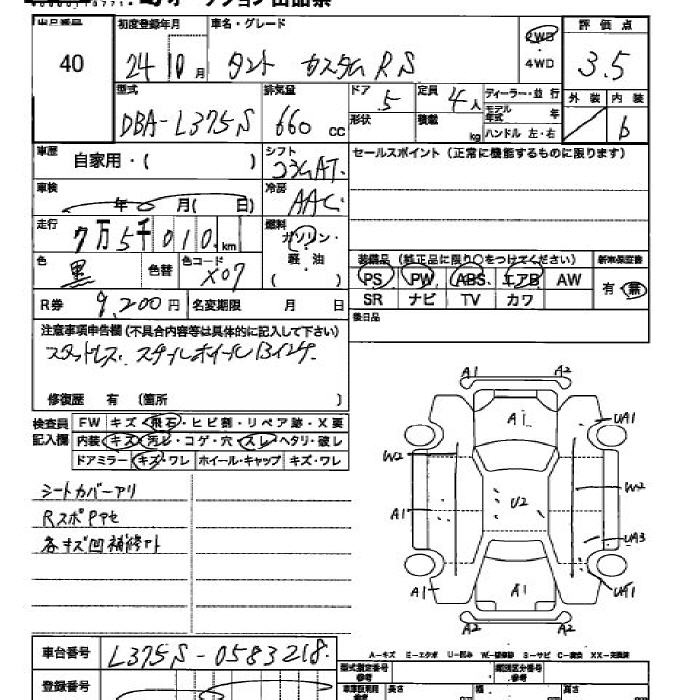 オークション出品票
出品番号 40
初度登録年月 24 10月
車名・グレード タント カスタムRS
2WD
4WD
評価点 3.5
外装 内装 b
型式 DBA-L375S
排気量 660 cc
ドア 5
形状
定員 4人
積載 kg
ディーラー・並行
モデル年式 年
ハンドル 左・右
車歴 自家用・( )
シフト コラムAT
冷房 AAC
セールスポイント(正常に機能するものに限ります)
車検 年 月( 日)
走行 7万5千010 km
燃料 ガソリン・軽油
( )
色 黒 色替 色コード X07
装備品(純正品に限り○をつけてください)
新車保証書
PS PW ABS エアB AW 有・無
SR ナビ TV カワ
R券 9,200円 名変期限 月 日
後日品
注意事項申告欄(不具合内容等は具体的に記入して下さい)
スタットレス.スチールホイール
修復歴 有 (箇所 )
検査員記入欄
FW キズ・飛石・ヒビ割・リペア跡・X要
内装・キズ・汚レ・コゲ・穴・スレ・ヘタリ・破レ
ドアミラー キズ・ワレ ホイール・キャップ キズ・ワレ
シートカバーアリ
RスポPアセ
各キズ凹補修アト
A1 A2
A1 UA1
W2 W2
A1 U2 UA3
A1 A1 UA1
A2 A2
A-キズ E-エクボ U-凹み W-補修跡 S-サビ C-腐食 XX-交換済
車台番号 L375S-0583218
登録番号
型式指定番号 参考
類別区分番号 参考
長さ 幅 高さ